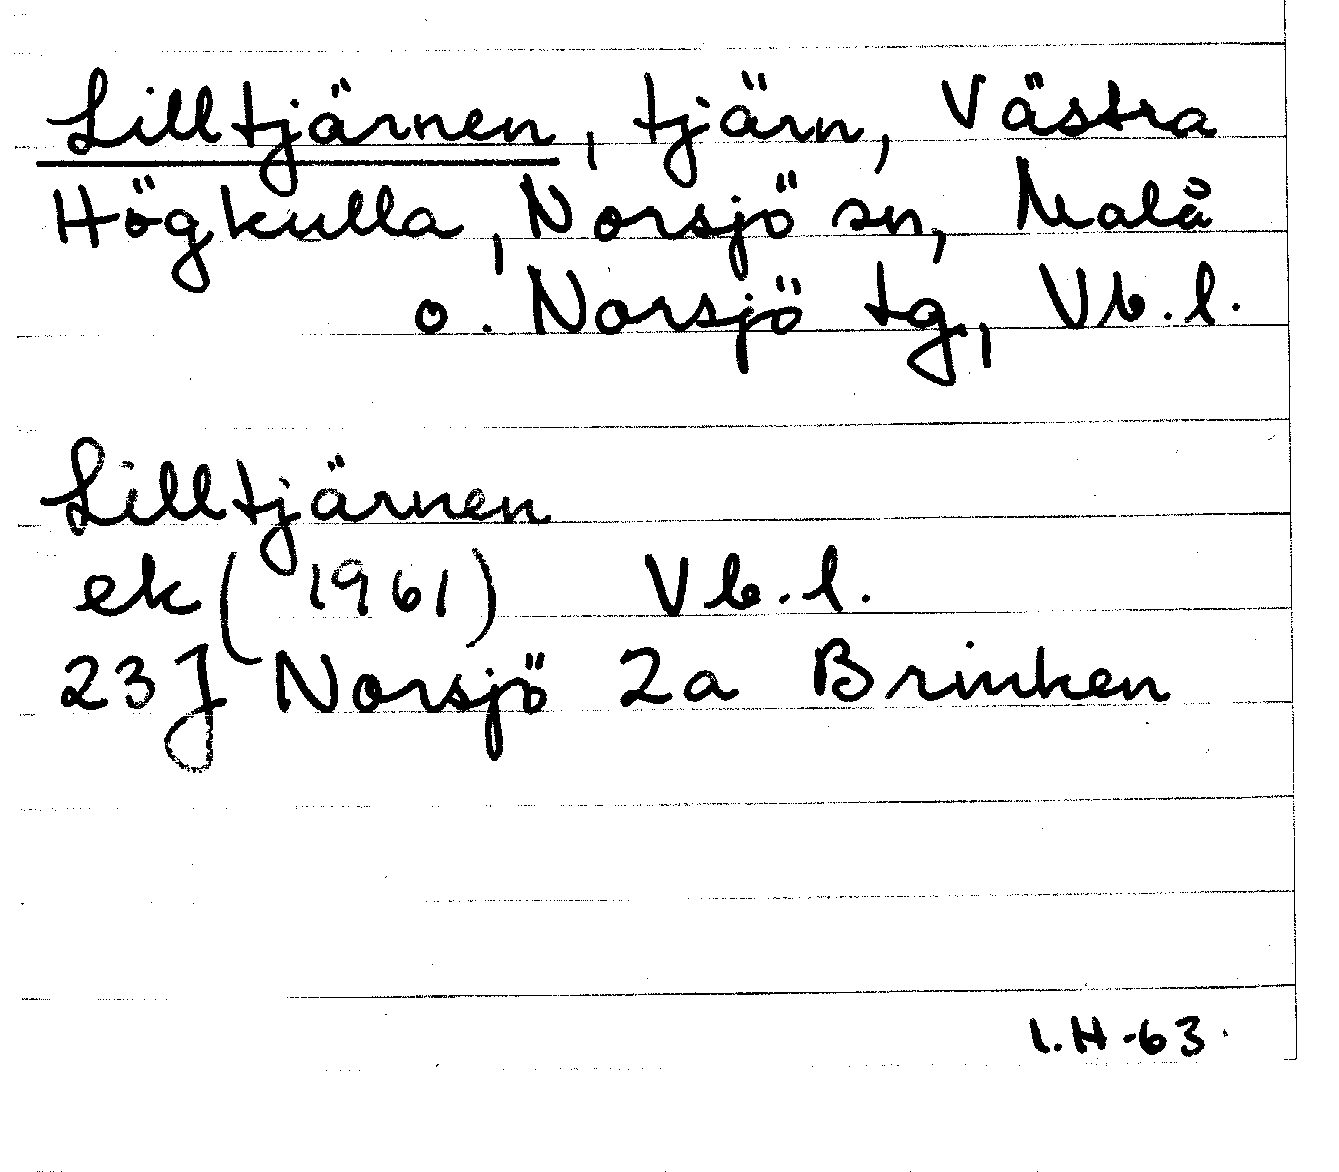 Lilltjärnen, tjärn, Västra
Högkulla, Norsjö sn, Malå
o. Norsjö tg, Vb. l.
Lilltjärnen
ek (1961) Vb. l.
23J Norsjö 2a Brinken
I.H -63.